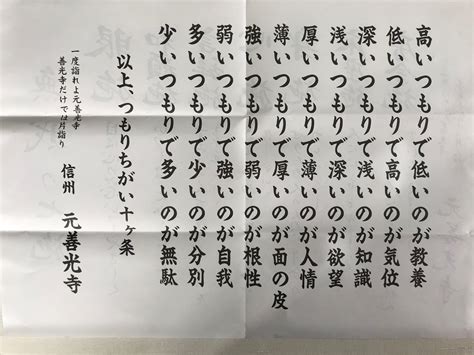 高いつもりで低いのが教養
低いつもりで高いのが気位
深いつもりで浅いのが知識
浅いつもりで深いのが欲望
厚いつもりで薄いのが人情
薄いつもりで厚いのが面の皮
強いつもりで弱いのが根性
弱いつもりで強いのが自我
多いつもりで少いのが分別
少いつもりで多いのが無駄
以上、つもりちがい十ヶ条
一度詣れよ元善光寺
善光寺だけでは片詣り
信州 元善光寺